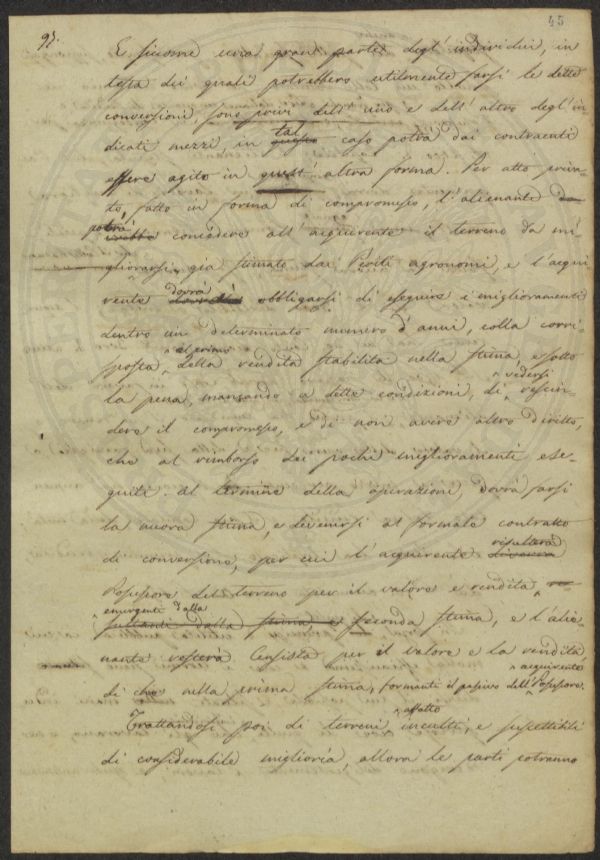 45
95.
E siccome una gran parte degl' individui, in
testa dei quali potrebbero utilmente farsi le dette
conversioni, sono privi dell' uno e dell' altro degl' in
dicati mezzi, in tal caso potrà dai contraenti
essere agito in quest' altra forma. Per atto priva-
to, fatto in forma di compromesso, l'alienante
potrà concedere all' acquirente il terreno da mi-
gliorarsi, già stimato dai Periti agronomi, e l'acqui
rente dovrà obbligarsi di eseguire i miglioramenti
dentro un determinato numero d'anni, colla corri
sposta al primo della rendita stabilita nella stima, e sotto
la pena, mancando a dette condizioni, di vedersi rescin-
dere il compromesso, e di non avere altro diritto,
che al rimborso dei pochi miglioramenti ese-
guiti. Al termine della operazione, dovrà farsi
la nuova stima, e devenirsi al formale contratto
di conversione, per cui l' acquirente risulterà
Possessore del terreno per il valore e rendita
emergenti dalla seconda stima, e l'alie-
nante resterà Censista per il valore e la rendita
di che nella prima stima, formanti il passivo dell' acquirente Possessore.
Trattandosi poi di terreni affatto incolti, e suscettibili
di considerabile miglioria, allora le parti potranno